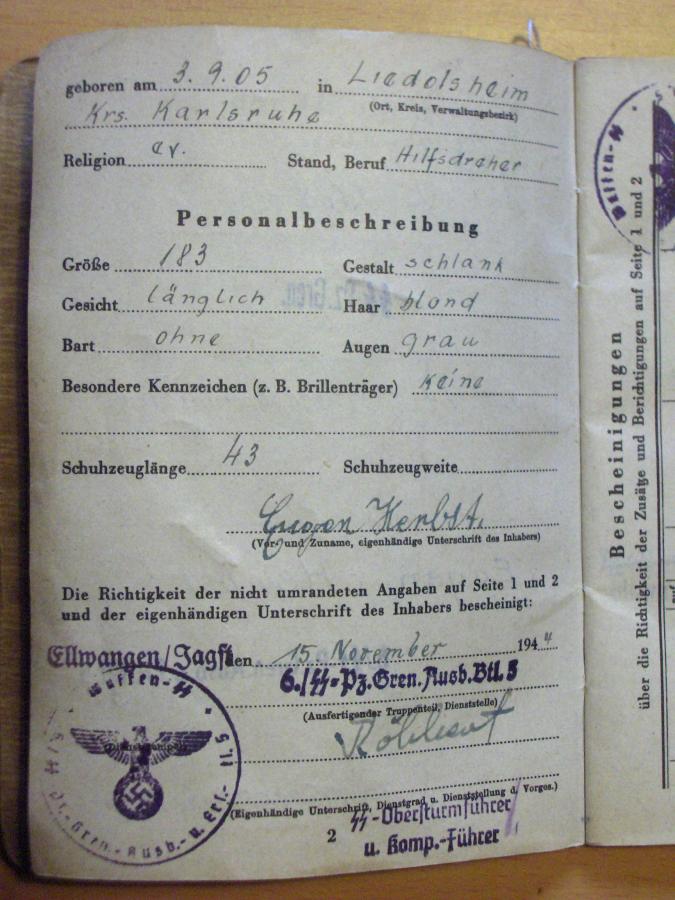 geboren am 3.9.05 in Liedolsheim
(Ort, Kreis, Verwaltungsbezirk)
Krs. Karlsruhe
Religion ev. Stand, Beruf Hilfsdreher
Personalbeschreibung
Größe 183 Gestalt schlank
Gesicht länglich Haar blond
Bart ohne Augen grau
Besondere Kennzeichen (z. B. Brillenträger) keine
Schuhzeuglänge 43 Schuhzeugweite
Eugen Herbst.
(Vor- und Zuname, eigenhändige Unterschrift des Inhabers)
Die Richtigkeit der nicht umrandeten Angaben auf Seite 1 und 2
und der eigenhändigen Unterschrift des Inhabers bescheinigt:
Ellwangen/Jagst den 15. November 1944
6./SS-Pz.Gren.Ausb.Btl. 5
(Ausfertigender Truppenteil, Dienststelle)
(Eigenhändige Unterschrift, Dienstgrad u. Dienststellung d. Vorges.)
SS-Obersturmführer
u. Komp.-Führer
2
Waffen-SS
(Dienststempel)
Gren.-Ausb.-u. Ers.-
Waffen-SS
Bescheinigungen
über die Richtigkeit der Zusätze und Berichtigungen auf Seite 1 und 2